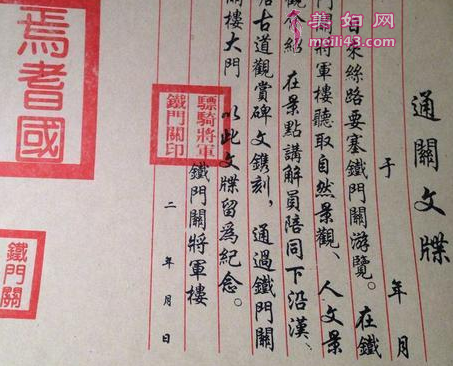 通關文牒
于 年 月
日來絲路要塞鐵門關游覽。在鐵
門關將軍樓聽取自然景觀、人文景
觀介紹 在景點講解員陪同下沿漢、
唐古道觀賞碑文鐫刻，通過鐵門關
關樓大門 以此文牒留為紀念。
鐵門關將軍樓
二 年 月 日
驃騎將軍
鐵門關印
焉耆國
鐵門關
美妇网
meili43.com